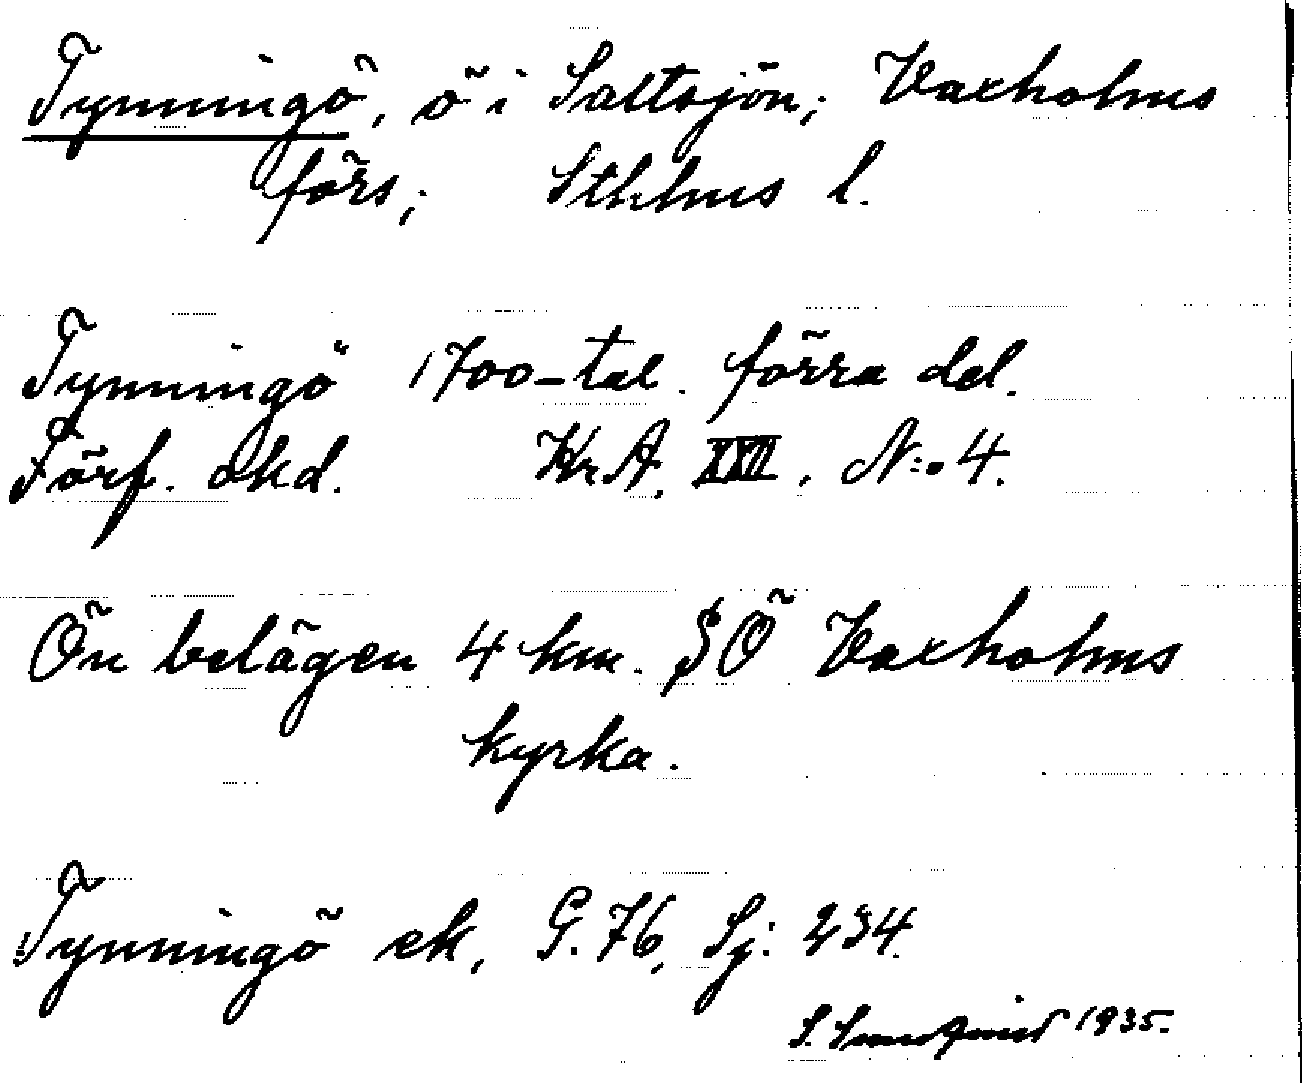 Tynningö, ö i Saltsjön; Vaxholms
förs; Sthlms l.
Tynningö 1700-tal. förra del.
Förf. okd. Kr.A. XXII. N:o 4.
Ön belägen 4 km. SÖ Vaxholms
kyrka.
Tynningö ek, G. 76, Sj: 234.
S. 1935.